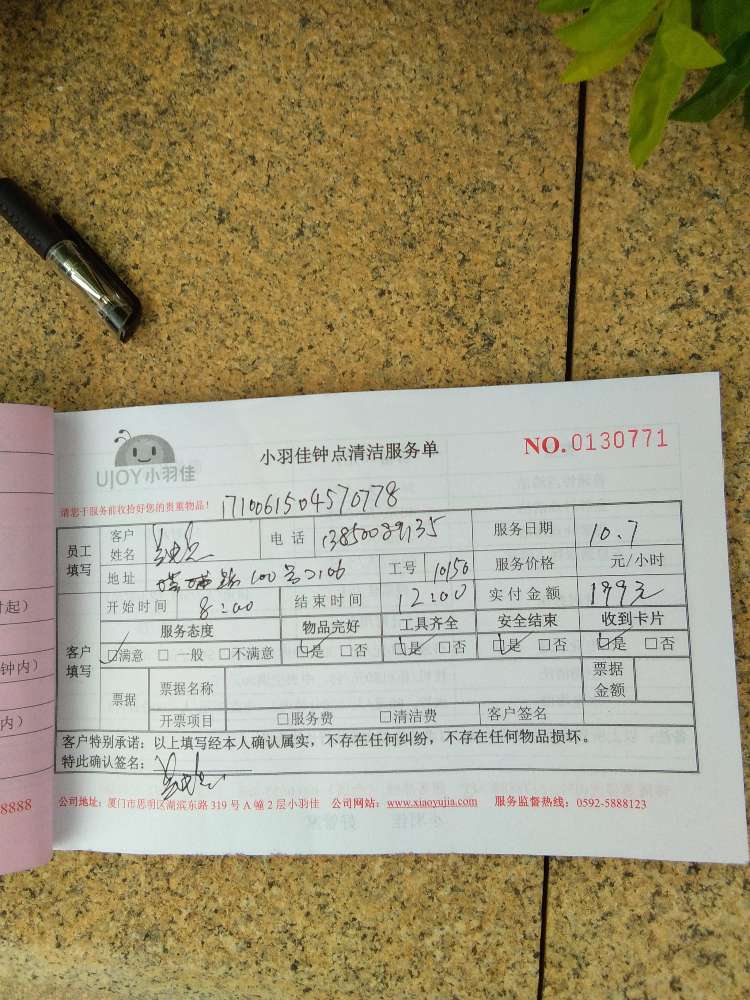 UJOY小羽佳
小羽佳钟点清洁服务单
NO.0130771
请您于服务前收拾好您的贵重物品！
1710061504570778
员工填写 客户姓名 电话 服务日期 10.7
地址 工号 10150 服务价格 元/小时
开始时间 8:00 结束时间 12:00 实付金额 199元
客户填写 服务态度 物品完好 工具齐全 安全结束 收到卡片
☑满意 □一般 □不满意 ☑是 □否 ☑是 □否 ☑是 □否 ☑是 □否
票据 票据名称 票据金额
开票项目 □服务费 □清洁费 客户签名
客户特别承诺：以上填写经本人确认属实，不存在任何纠纷，不存在任何物品损坏。
特此确认签名：
公司地址：厦门市思明区湖滨东路 319 号 A 幢 2 层小羽佳 公司网站：www.xiaoyujia.com 服务监督热线：0592-5888123
时起）
钟内）
内）
8888